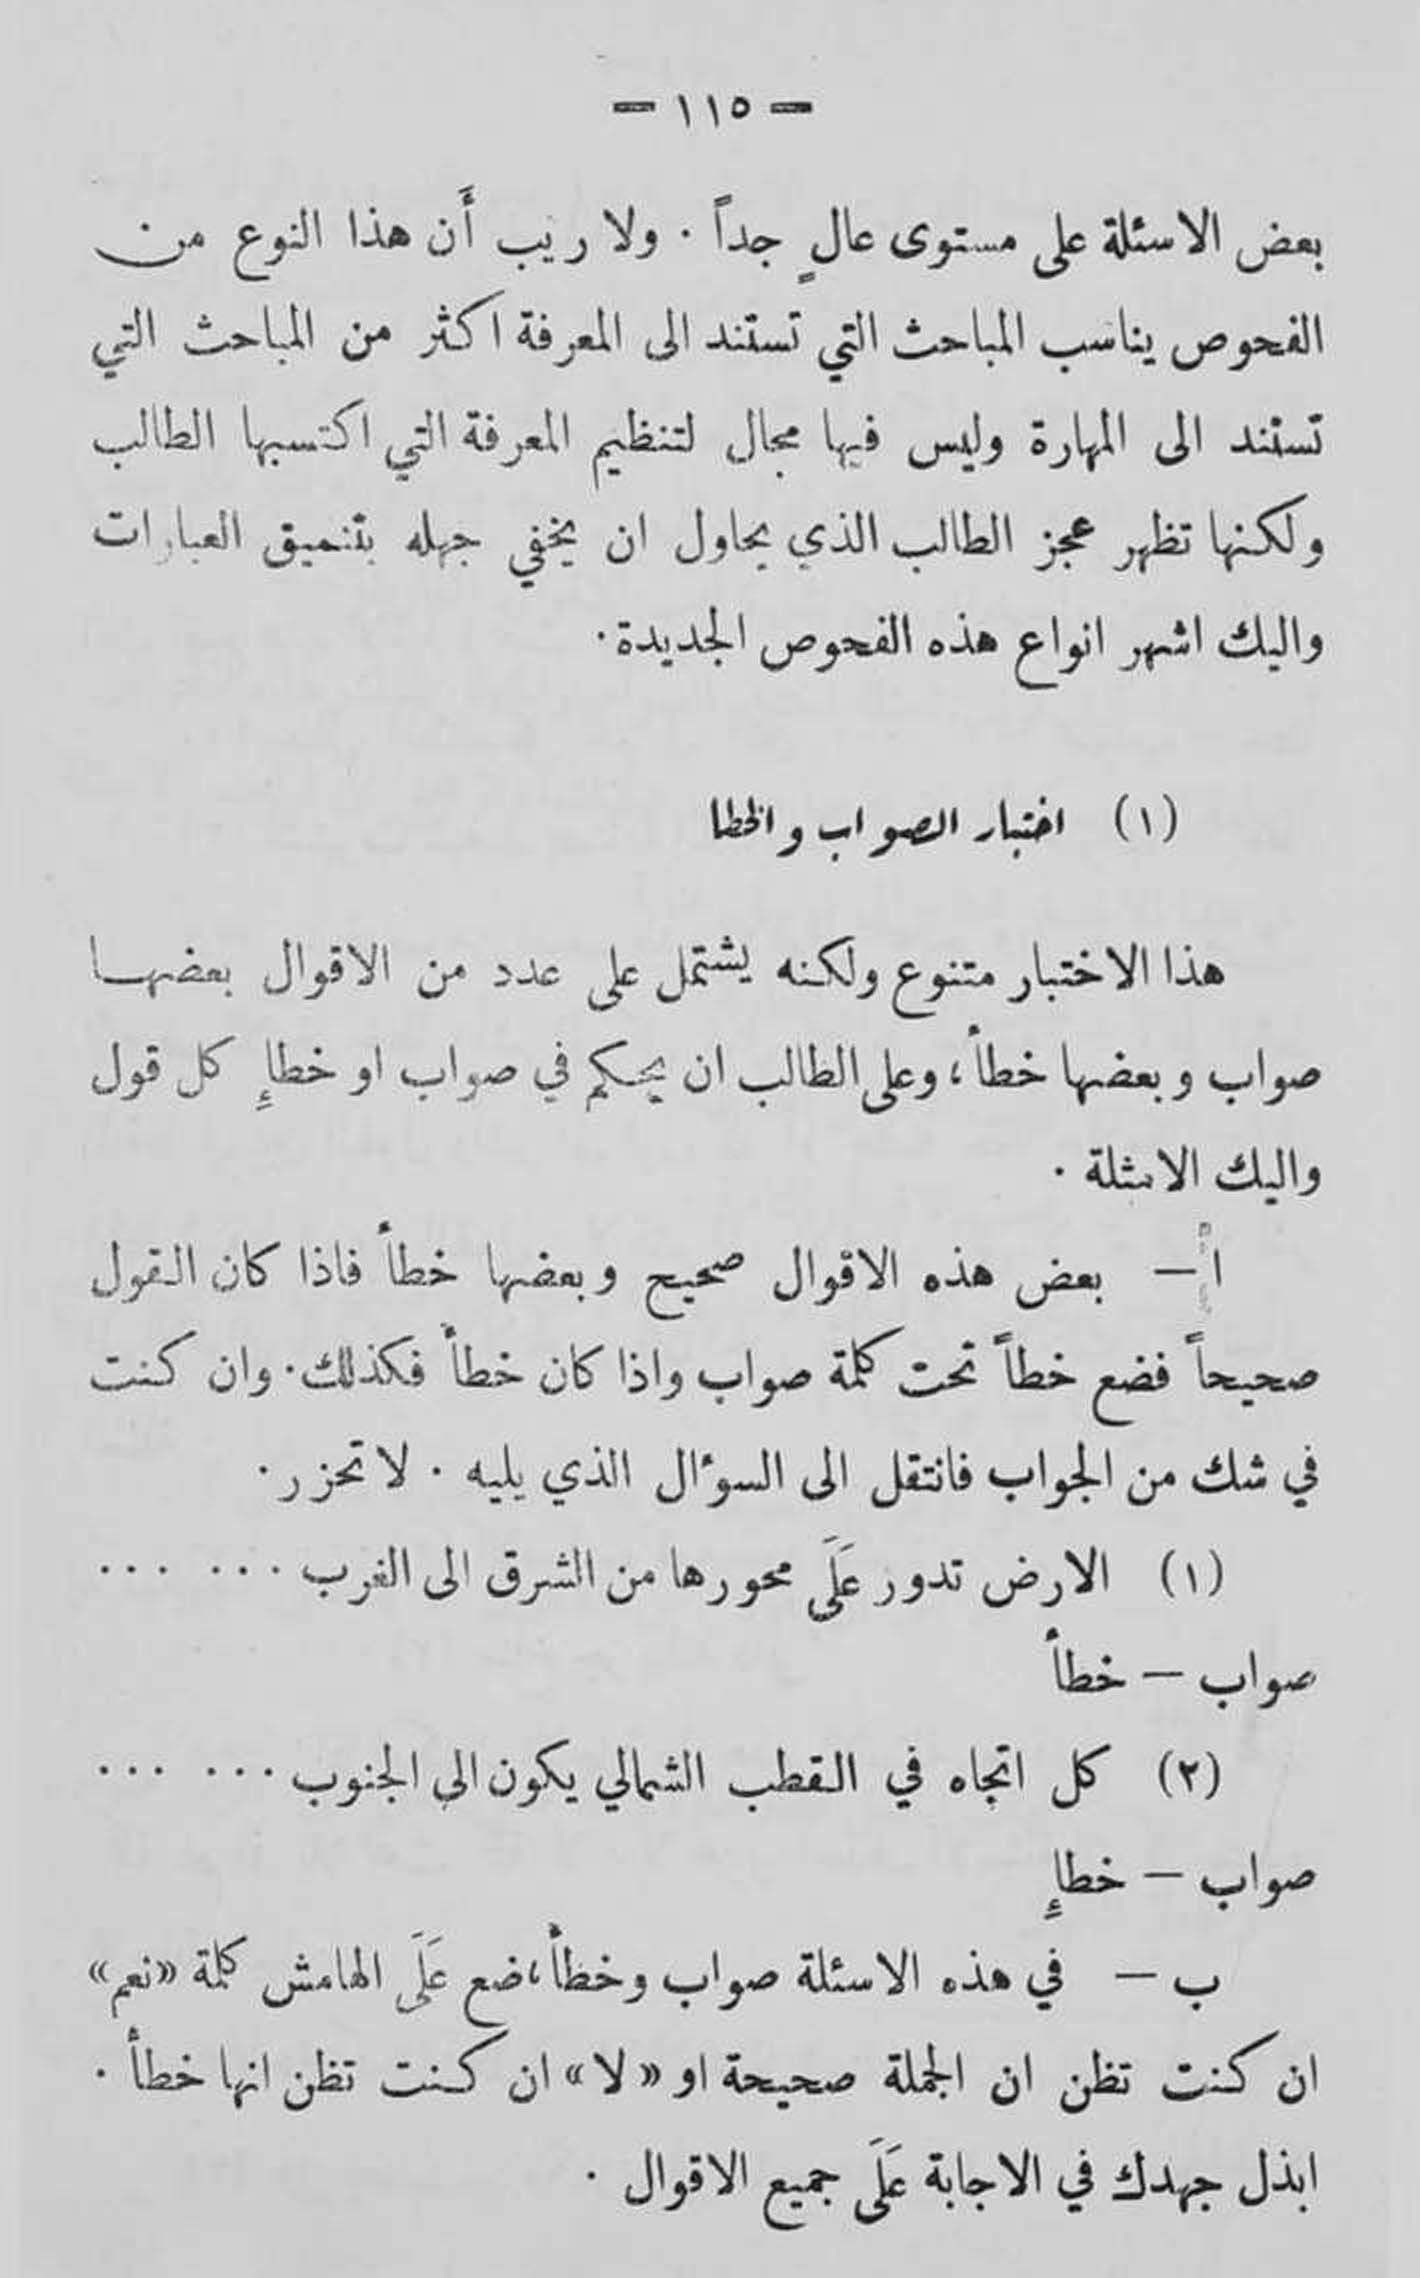 — ١١٥ —
بعض الاسئلة على مستوى عالٍ جداً . ولا ريب أَن هذا النوع من
الفحوص يناسب المباحث التي تستند الى المعرفة اكثر من المباحث التي
تستند الى المهارة وليس فيها مجال لتنظيم المعرفة التي اكتسبها الطالب
ولكنها تظهر عجز الطالب الذي يحاول ان يخفي جهله بتنميق العبارات
واليك اشهر انواع هذه الفحوص الجديدة .
(١) اختبار الصواب والخطا
هذا الاختبار متنوع ولكنه يشتمل على عدد من الاقوال بعضها
صواب وبعضها خطأ ، وعلى الطالب ان يحكم في صواب او خطإِ كل قول
واليك الامثلة .
اً — بعض هذه الاقوال صحيح وبعضها خطأ فاذا كان القول
صحيحاً فضع خطاً تحت كلمة صواب واذا كان خطأ فكذلك . وان كنت
في شك من الجواب فانتقل الى السوءال الذي يليه . لا تحزر .
(١) الارض تدور عَلَى محورها من الشرق الى الغرب ... ...
صواب — خطأ
(٢) كل اتجاه في القطب الشمالي يكون الى الجنوب ... ...
صواب — خطإٍ
ب — في هذه الاسئلة صواب وخطأ ، ضع عَلَى الهامش كلمة «نعم»
ان كنت تظن ان الجملة صحيحة او « لا » ان كنت تظن انها خطأ .
ابذل جهدك في الاجابة عَلَى جميع الاقوال .